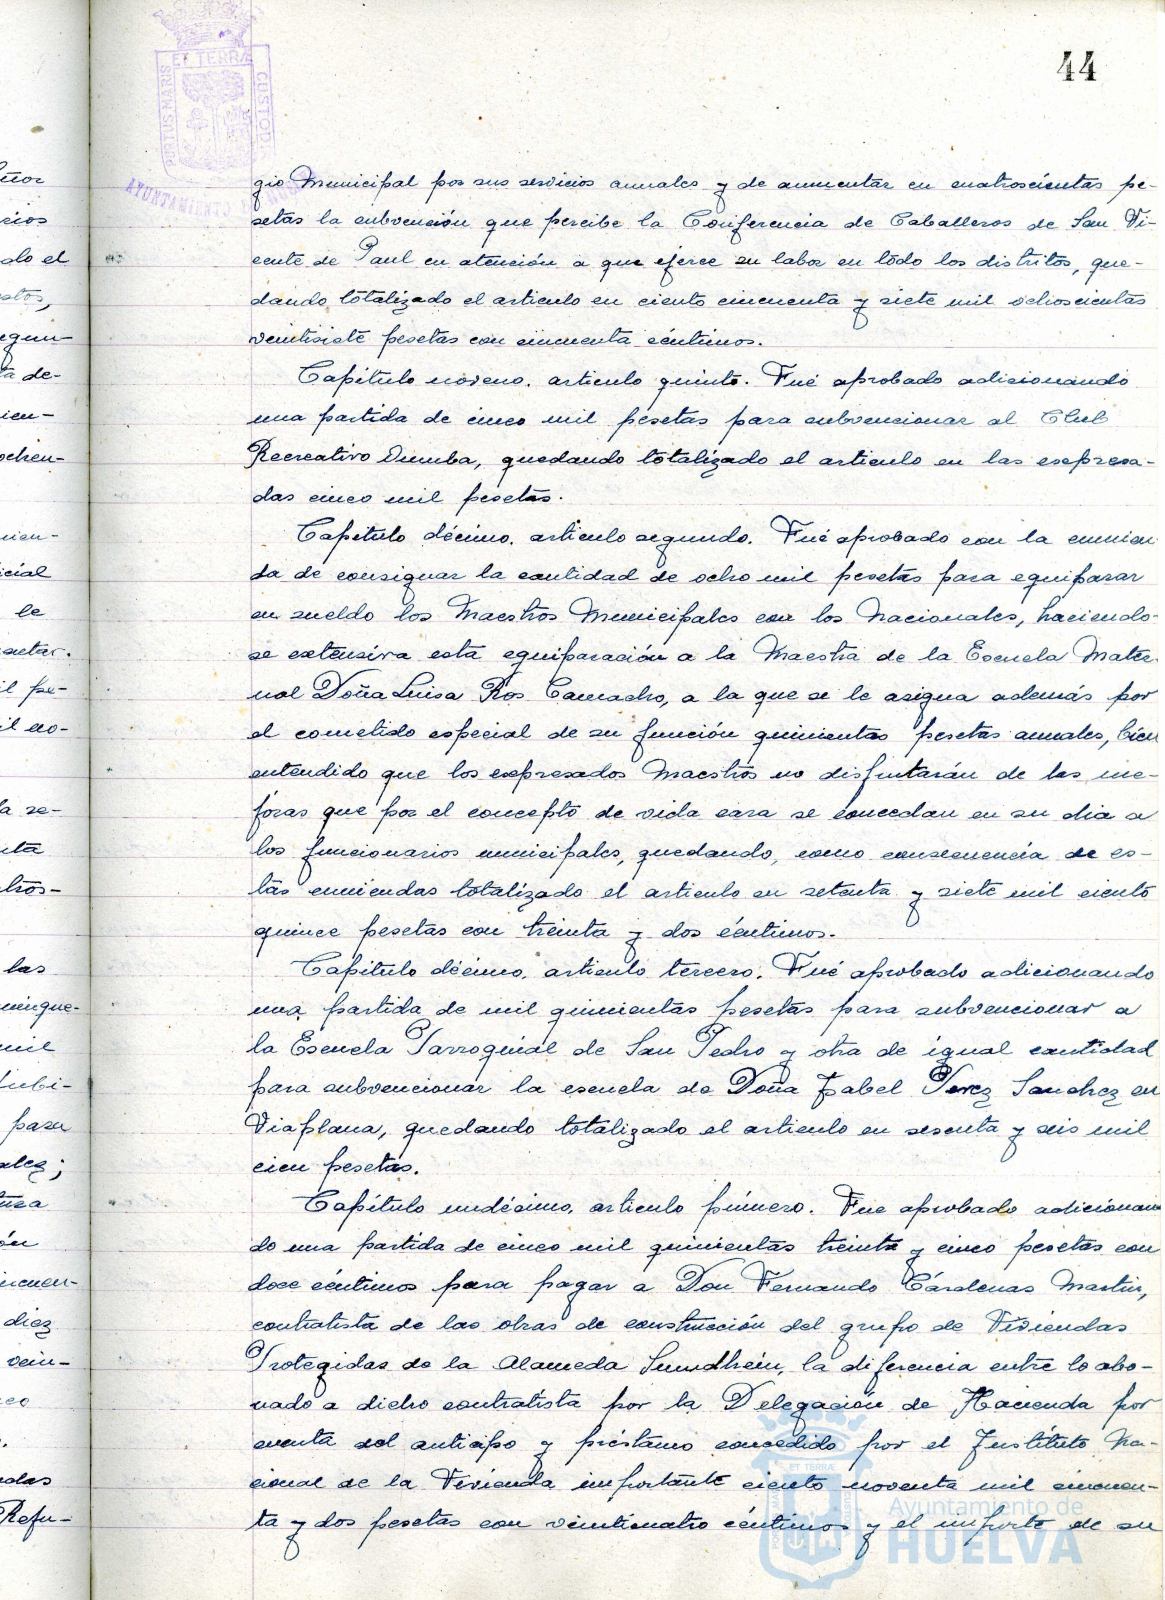 44
PORTUS MARIS ET TERRÆ CUSTODIA
AYUNTAMIENTO
gio Municipal por sus servicios anuales y de aumentar en cuatroscientas pe-
setas la subvención que percibe la Conferencia de Caballeros de San Vi-
cente de Paul en atención a que ejerce su labor en todo los distritos, que-
dando totalizado el articulo en ciento cincuenta y siete mil ochoscientas
veintisiete pesetas con cincuenta céntimos.
Capítulo noveno. articulo quinto. Fué aprobado adicionando
una partida de cinco mil pesetas para subvencionar al Club
Recreativo Onuba, quedando totalizado el articulo en las espresa-
das cinco mil pesetas.
Capítulo décimo. articulo segundo. Fué aprobado con la enmien
da de consignar la cantidad de ocho mil pesetas para equiparar
en sueldo los Maestros Municipales con los Nacionales, haciendo-
se extensiva esta equiparación a la Maestra de la Escuela Mater-
nal Doña Luisa Ros Camacho, a la que se le asigna además por
el cometido especial de su función quinientas pesetas anuales, bien
entendido que los espresados Maestros no disfrutarán de las me-
joras que por el concepto de vida cara se concedan en su dia a
los funcionarios municipales, quedando, como consecuencia de es-
tas enmiendas totalizado el articulo en setenta y siete mil ciento
quince pesetas con treinta y dos céntimos.
Capítulo décimo, articulo tercero. Fué aprobado adicionando
una partida de mil quinientas pesetas para subvencionar a
la Escuela Parroquial de San Pedro y otra de igual cantidad
para subvencionar la escuela de Doña Isabel Perez Sanchez en
Viaplana, quedando totalizado el articulo en sesenta y seis mil
cien pesetas.
Capítulo undécimo, articulo primero. Fue aprobado adicionan
do una partida de cinco mil quinientas treinta y cinco pesetas con
doce céntimos para pagar a Don Fernando Cárdenas Martin,
contratista de las obras de construcción del grupo de Viviendas
Protegidas de la Alameda Sundhein, la diferencia entre lo abo-
nado a dicho contratista por la Delegación de Hacienda por
cuenta del anticipo y préstamo concedido por el Instituto Na-
cional de la Vivienda importante ciento noventa mil cincuen-
ta y dos pesetas con veinticuatro céntimos y el importe de su
Ayuntamiento de
HUELVA